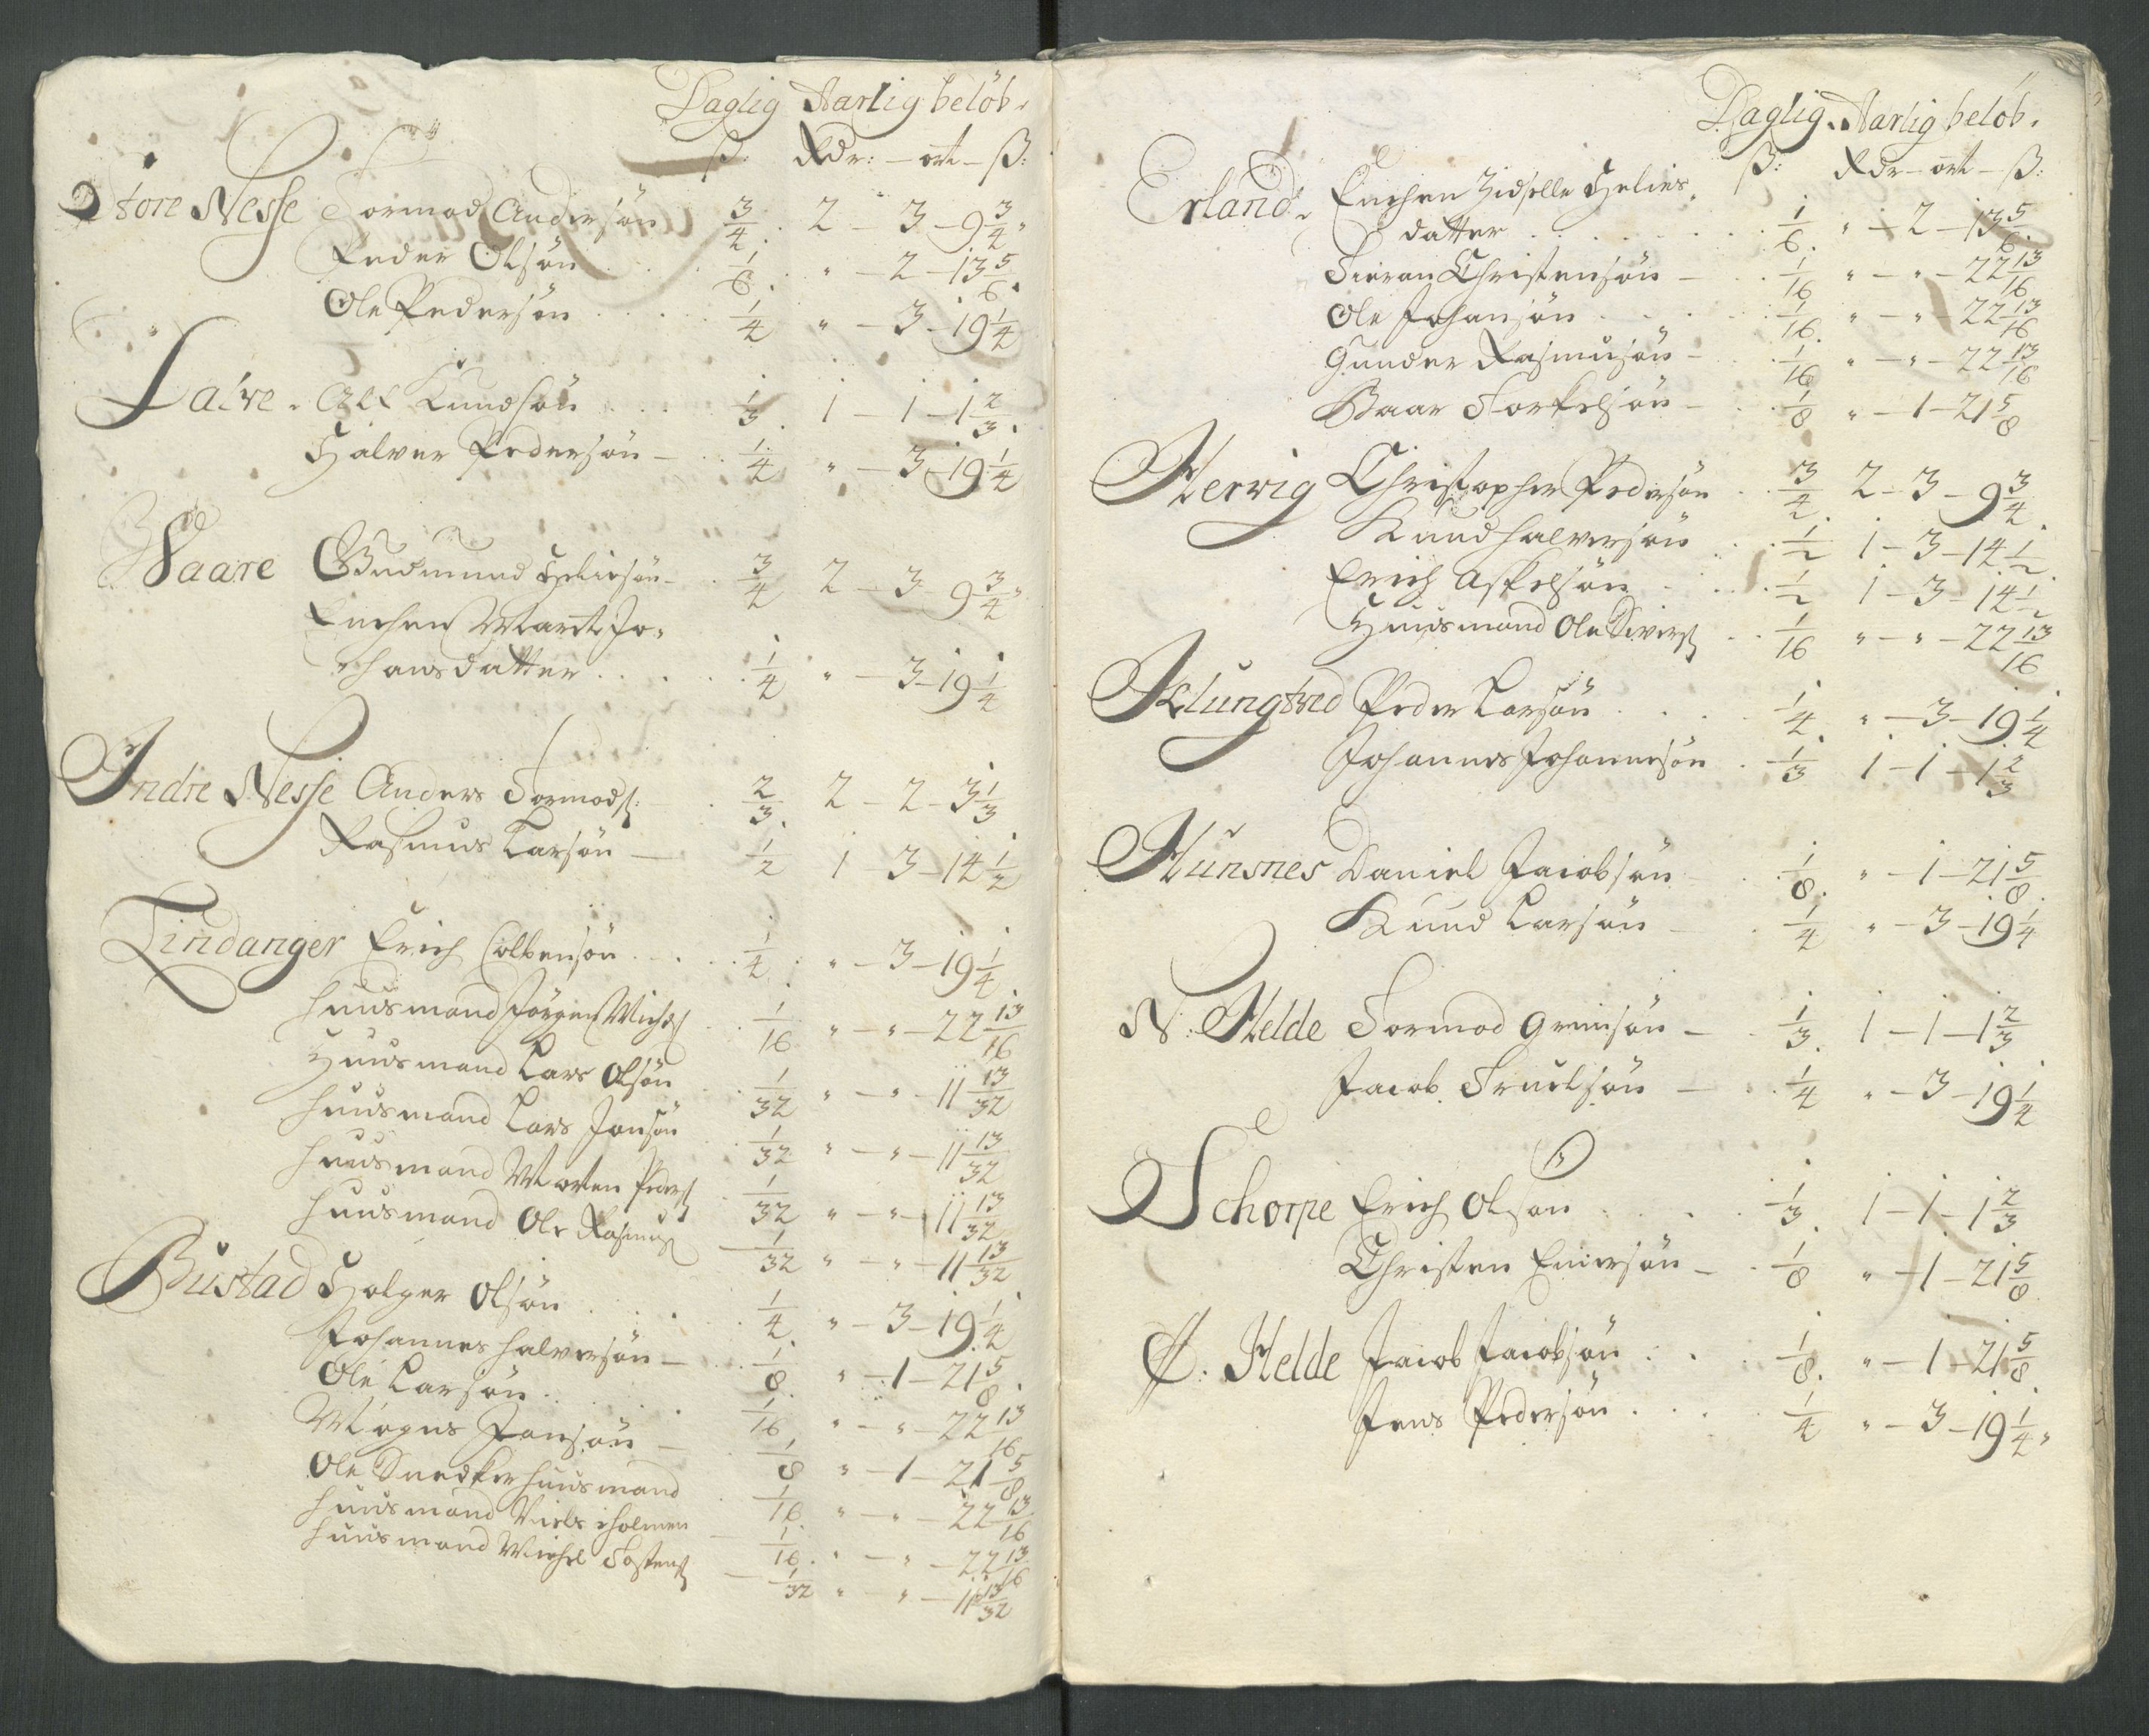 Daglig Aarlig beløb.
ß: Rdr: – ort – ß:
Store Nesse Tormod Andersøn 3/4 . 2 – 3 – 9 3/4
Peder Olsøn . . . 1/6 . " – 2 – 13 5/6
Ole Pedersøn . . . . 1/4 " – 3 – 19 1/4
Knudsøn . . . 1/3 1 – 1 – 1 2/3
Halver Pedersøn – . 1/4 " – 3 – 19 1/4
Waare Gudmund Heliesøn – . 3/4 2 – 3 – 9 3/4
Enchen Marit Jo-
hansdatter . . . . . 1/4 " – 3 – 19 1/4
Indre Nesse Anders Tormods: . 2/3 2 – 2 – 3 1/3
Rasmus Larsøn – 1/2 1 – 3 – 14 1/2
Tindanger Erich Colbensøn . . . 1/4 . " – 3 – 19 1/4
Huusmand Jørgen Michels . 1/16 " – " – 22 13/16
Huusmand Lars Olsøn . 1/32 " – " – 11 13/32
Huusmand Lars Jonsøn . 1/32 " – " – 11 13/32
Huusmand Morten Peders . 1/32 " – " – 11 13/32
Huusmand Ole Rasmus – 1/32 " – " – 11 13/32
Bustad Holger Olsøn . . . . 1/4 " – 3 – 19 1/4
Johannes Halversøn – . . 1/8 " – 1 – 21 5/8
Ole Larsøn . . . . 1/16 " – " – 22 13/16
Mogns Jonsøn – 1/8 " – 1 – 21 5/8
Ole Snedker Huusmand . 1/16 " – " – 22 13/16
Huusmand Niels i holmen – 1/16 . " – " – 22 13/16
Huusmand Michel Tostens – 1/32 " – " – 11 13/32
Daglig. Aarlig beløb.
ß: Rdr – ort – ß:
Erland. Enchen Zidselle Helies-
datter . . . . . 1/6 . " – 2 – 13 5/6
Christensøn – . 1/16 " – " – 22 13/16
Ole Johansøn . . . 1/16 " – " – 22 13/16
Gunder Rasmusøn – . 1/16 " – " – 22 13/16
Baar Torkelsøn – . 1/8 " – 1 – 21 5/8
Herwig Christopher Pedersøn . 3/4 2 – 3 – 9 3/4
Knud Halversøn . . 1/2 1 – 3 – 14 1/2
Erich Askelsøn . . 1/2 1 – 3 – 14 1/2
Huusmand Ole Sivers . . 1/16 " – " – 22 13/16
Peder Larsøn . . . 1/4 . " – 3 – 19 1/4
Johannes Johannesøn . 1/3 1 – 1 – 1 2/3
Hunsnes Daniel Jacobsøn – . 1/8 . " – 1 – 21 5/8
Knud Larsøn – . 1/4 " – 3 – 19 1/4
N: Helde Tormod Grimsøn – . 1/3 . 1 – 1 – 1 2/3
Jacob Truelsøn – . 1/4 " – 3 – 19 1/4
Schorpe Erich Olsøn . . . . 1/3 . 1 – 1 – 1 2/3
Christen Enersøn – . 1/8 " – 1 – 21 5/8
Helde Jacob Jacobsøn . . . 1/8 . " – 1 – 21 5/8
Jens Pedersøn . . . 1/4 " – 3 – 19 1/4